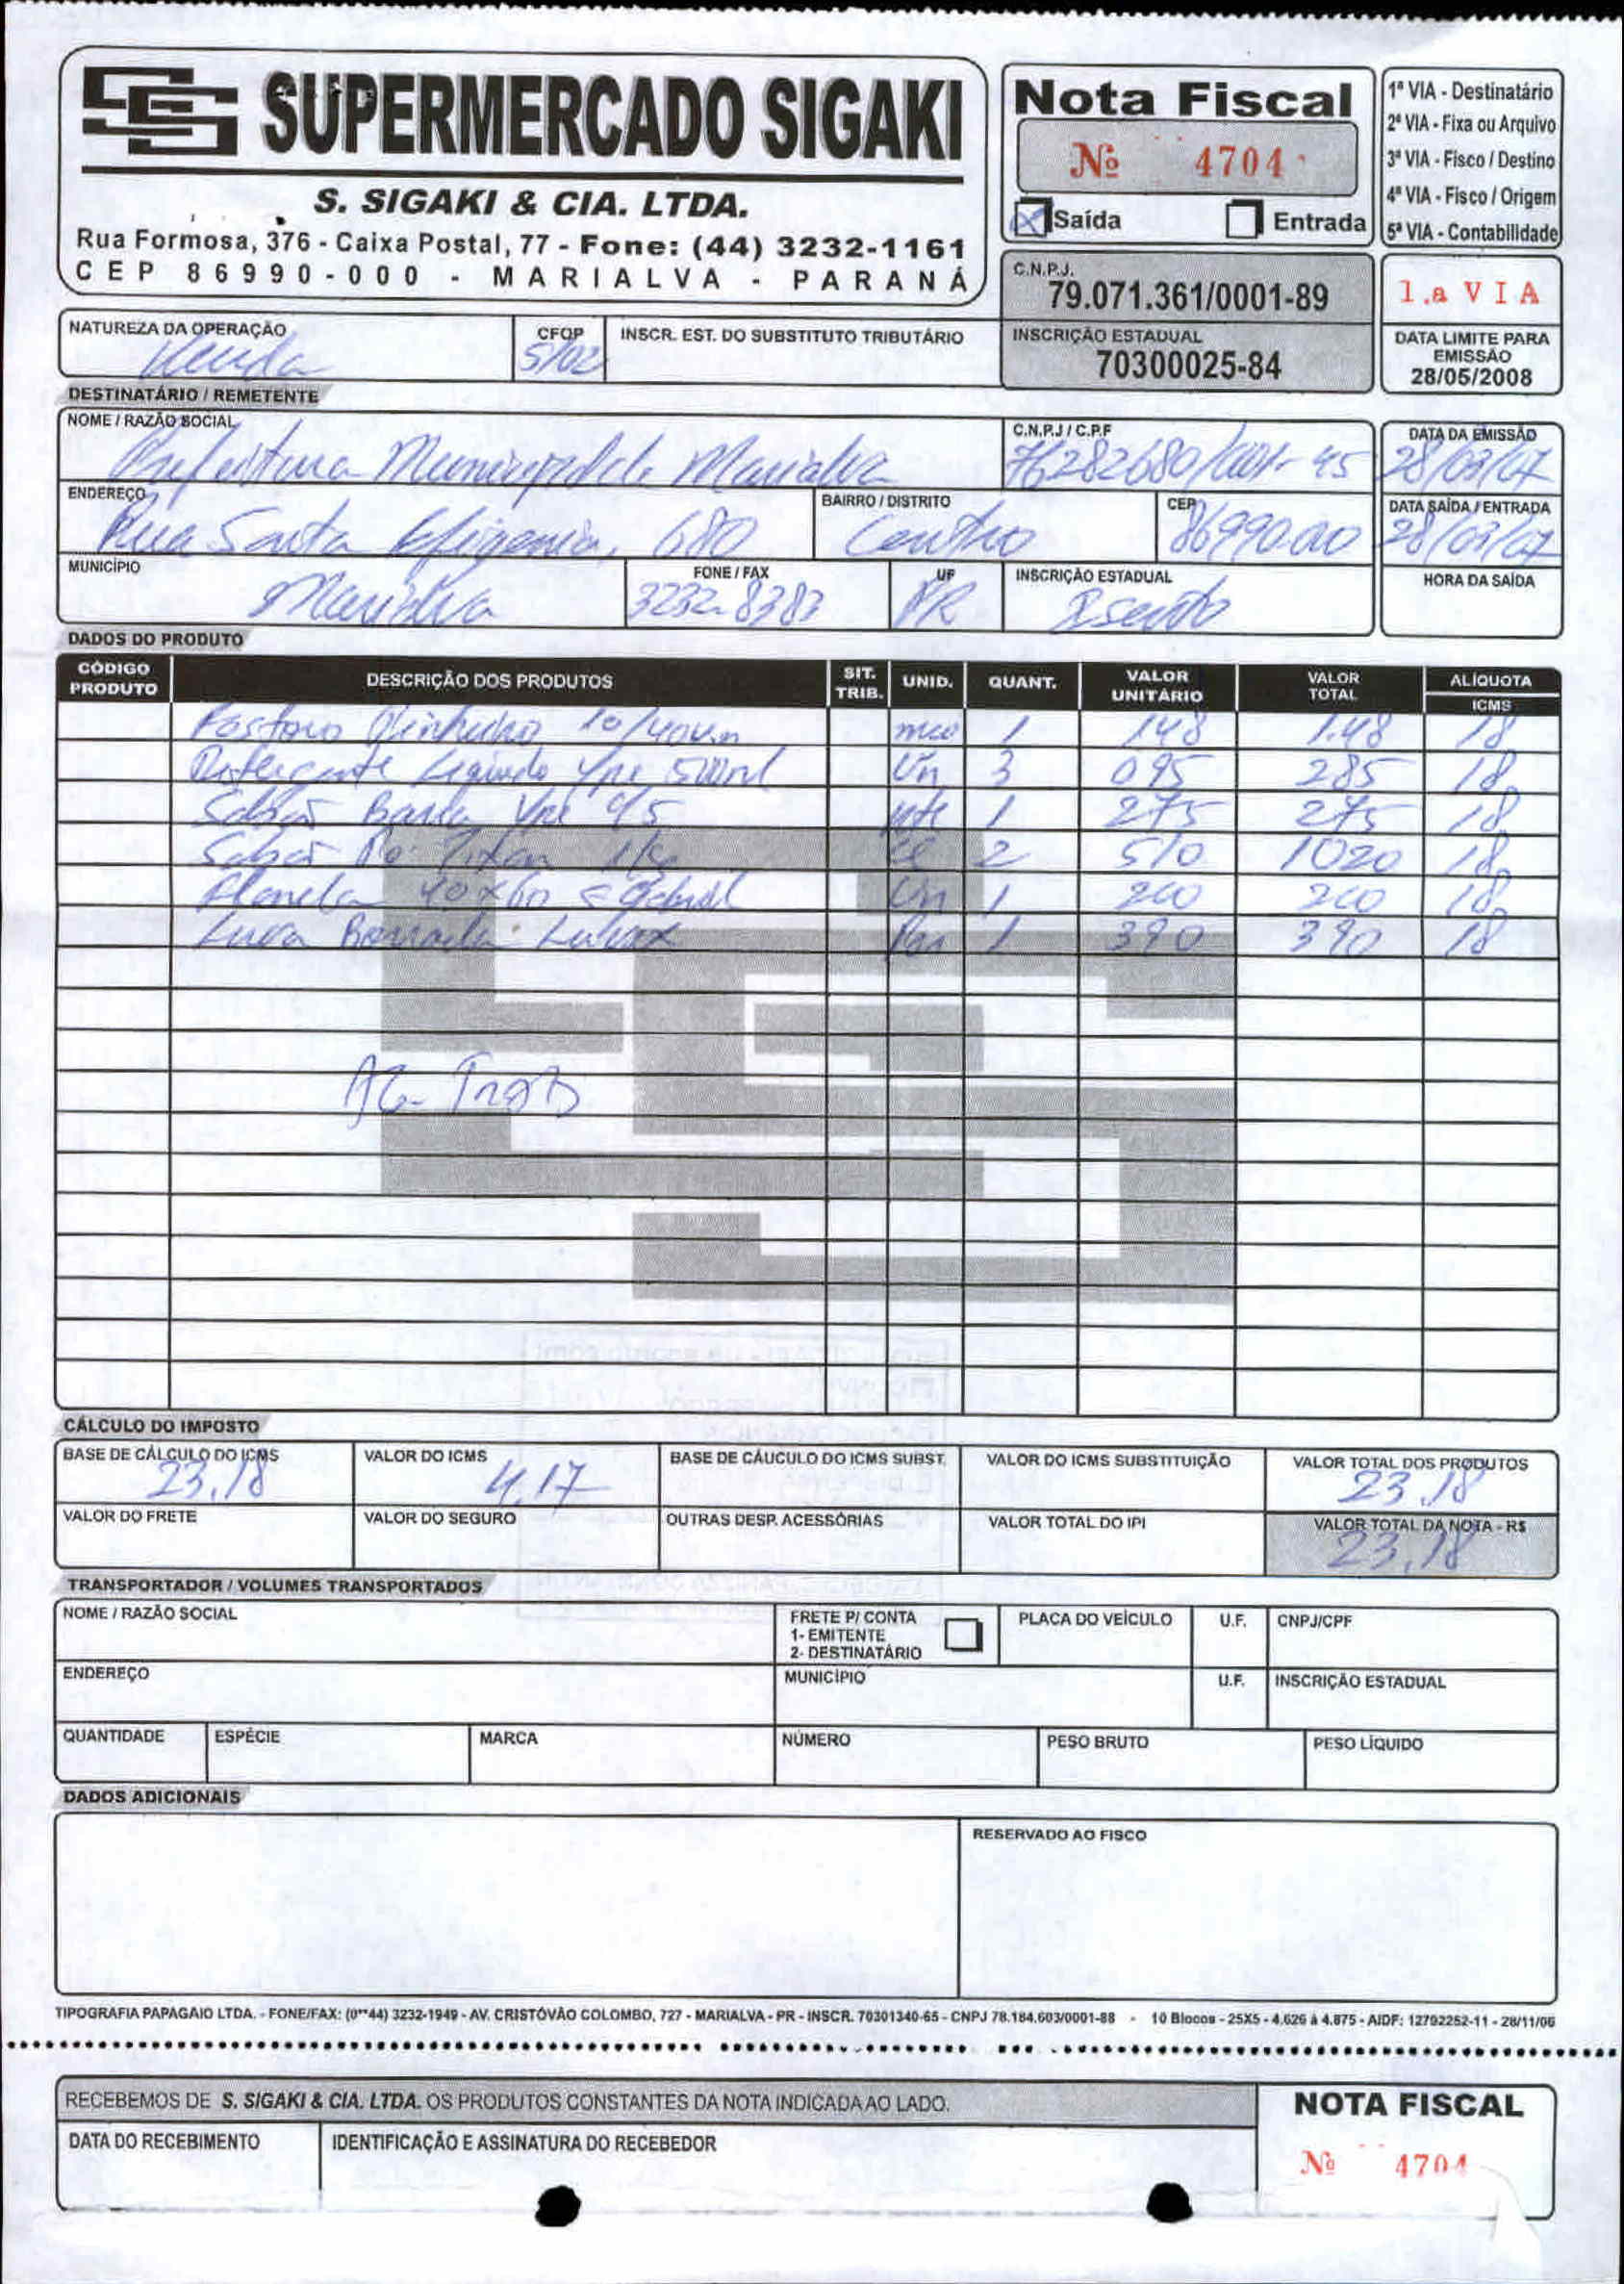 SUPERMERCADO SIGAKI
S. SIGAKI & CIA. LTDA.
Rua Formosa, 376 - Caixa Postal, 77 - Fone: (44) 3232-1161
CEP 86990-000 - MARIALVA - PARANÁ
Nota Fiscal
Nº 4704
Saída Entrada
1ª VIA - Destinatário
2ª VIA - Fixa ou Arquivo
3ª VIA - Fisco / Destino
4ª VIA - Fisco / Origem
5ª VIA - Contabilidade
C.N.P.J.
79.071.361/0001-89
1.a VIA
NATUREZA DA OPERAÇÃO
Venda
CFOP
5102
INSCR. EST. DO SUBSTITUTO TRIBUTÁRIO
INSCRIÇÃO ESTADUAL
70300025-84
DATA LIMITE PARA
EMISSÃO
28/05/2008
DESTINATÁRIO / REMETENTE
NOME / RAZÃO SOCIAL
Prefeitura Municipal de Marialva
C.N.P.J / C.P.F
76282680/001-45
DATA DA EMISSÃO
28/03/07
ENDEREÇO
Rua Santa Efigenia, 680
BAIRRO / DISTRITO
Centro
CEP
86990.00
DATA SAÍDA / ENTRADA
28/03/07
MUNICÍPIO
Marialva
FONE / FAX
3232-8383
UF
PR
INSCRIÇÃO ESTADUAL
Isento
HORA DA SAÍDA
DADOS DO PRODUTO
CÓDIGO PRODUTO DESCRIÇÃO DOS PRODUTOS SIT. TRIB. UNID. QUANT. VALOR UNITÁRIO VALOR TOTAL ALÍQUOTA ICMS
Fosforo 10/40un 1 148 1.48 18
Detergente Liquido Ype 500ml Un 3 095 285 18
Sabão Barra Ype c/5 1 275 275 18
Sabão Po Tixan 2 510 1020 18
Flanela Un 1 200 200 18
Luva Borracha Par 1 390 390 18
CÁLCULO DO IMPOSTO
BASE DE CÁLCULO DO ICMS
23,18
VALOR DO ICMS
4,17
BASE DE CÁUCULO DO ICMS SUBST.
VALOR DO ICMS SUBSTITUIÇÃO
VALOR TOTAL DOS PRODUTOS
23,18
VALOR DO FRETE
VALOR DO SEGURO
OUTRAS DESP. ACESSÓRIAS
VALOR TOTAL DO IPI
VALOR TOTAL DA NOTA - R$
23,18
TRANSPORTADOR / VOLUMES TRANSPORTADOS
NOME / RAZÃO SOCIAL
FRETE P/ CONTA
1- EMITENTE
2- DESTINATÁRIO
PLACA DO VEÍCULO
U.F.
CNPJ/CPF
ENDEREÇO
MUNICÍPIO
U.F.
INSCRIÇÃO ESTADUAL
QUANTIDADE
ESPÉCIE
MARCA
NÚMERO
PESO BRUTO
PESO LÍQUIDO
DADOS ADICIONAIS
RESERVADO AO FISCO
TIPOGRAFIA PAPAGAIO LTDA. - FONE/FAX: (0**44) 3232-1949 - AV. CRISTÓVÃO COLOMBO, 727 - MARIALVA - PR - INSCR. 70301340-65 - CNPJ 78.184.603/0001-88 - 10 Blocos - 25X5 - 4.626 à 4.875 - AIDF: 12792252-11 - 28/11/06
RECEBEMOS DE S. SIGAKI & CIA. LTDA. OS PRODUTOS CONSTANTES DA NOTA INDICADA AO LADO.
DATA DO RECEBIMENTO
IDENTIFICAÇÃO E ASSINATURA DO RECEBEDOR
NOTA FISCAL
Nº 4704